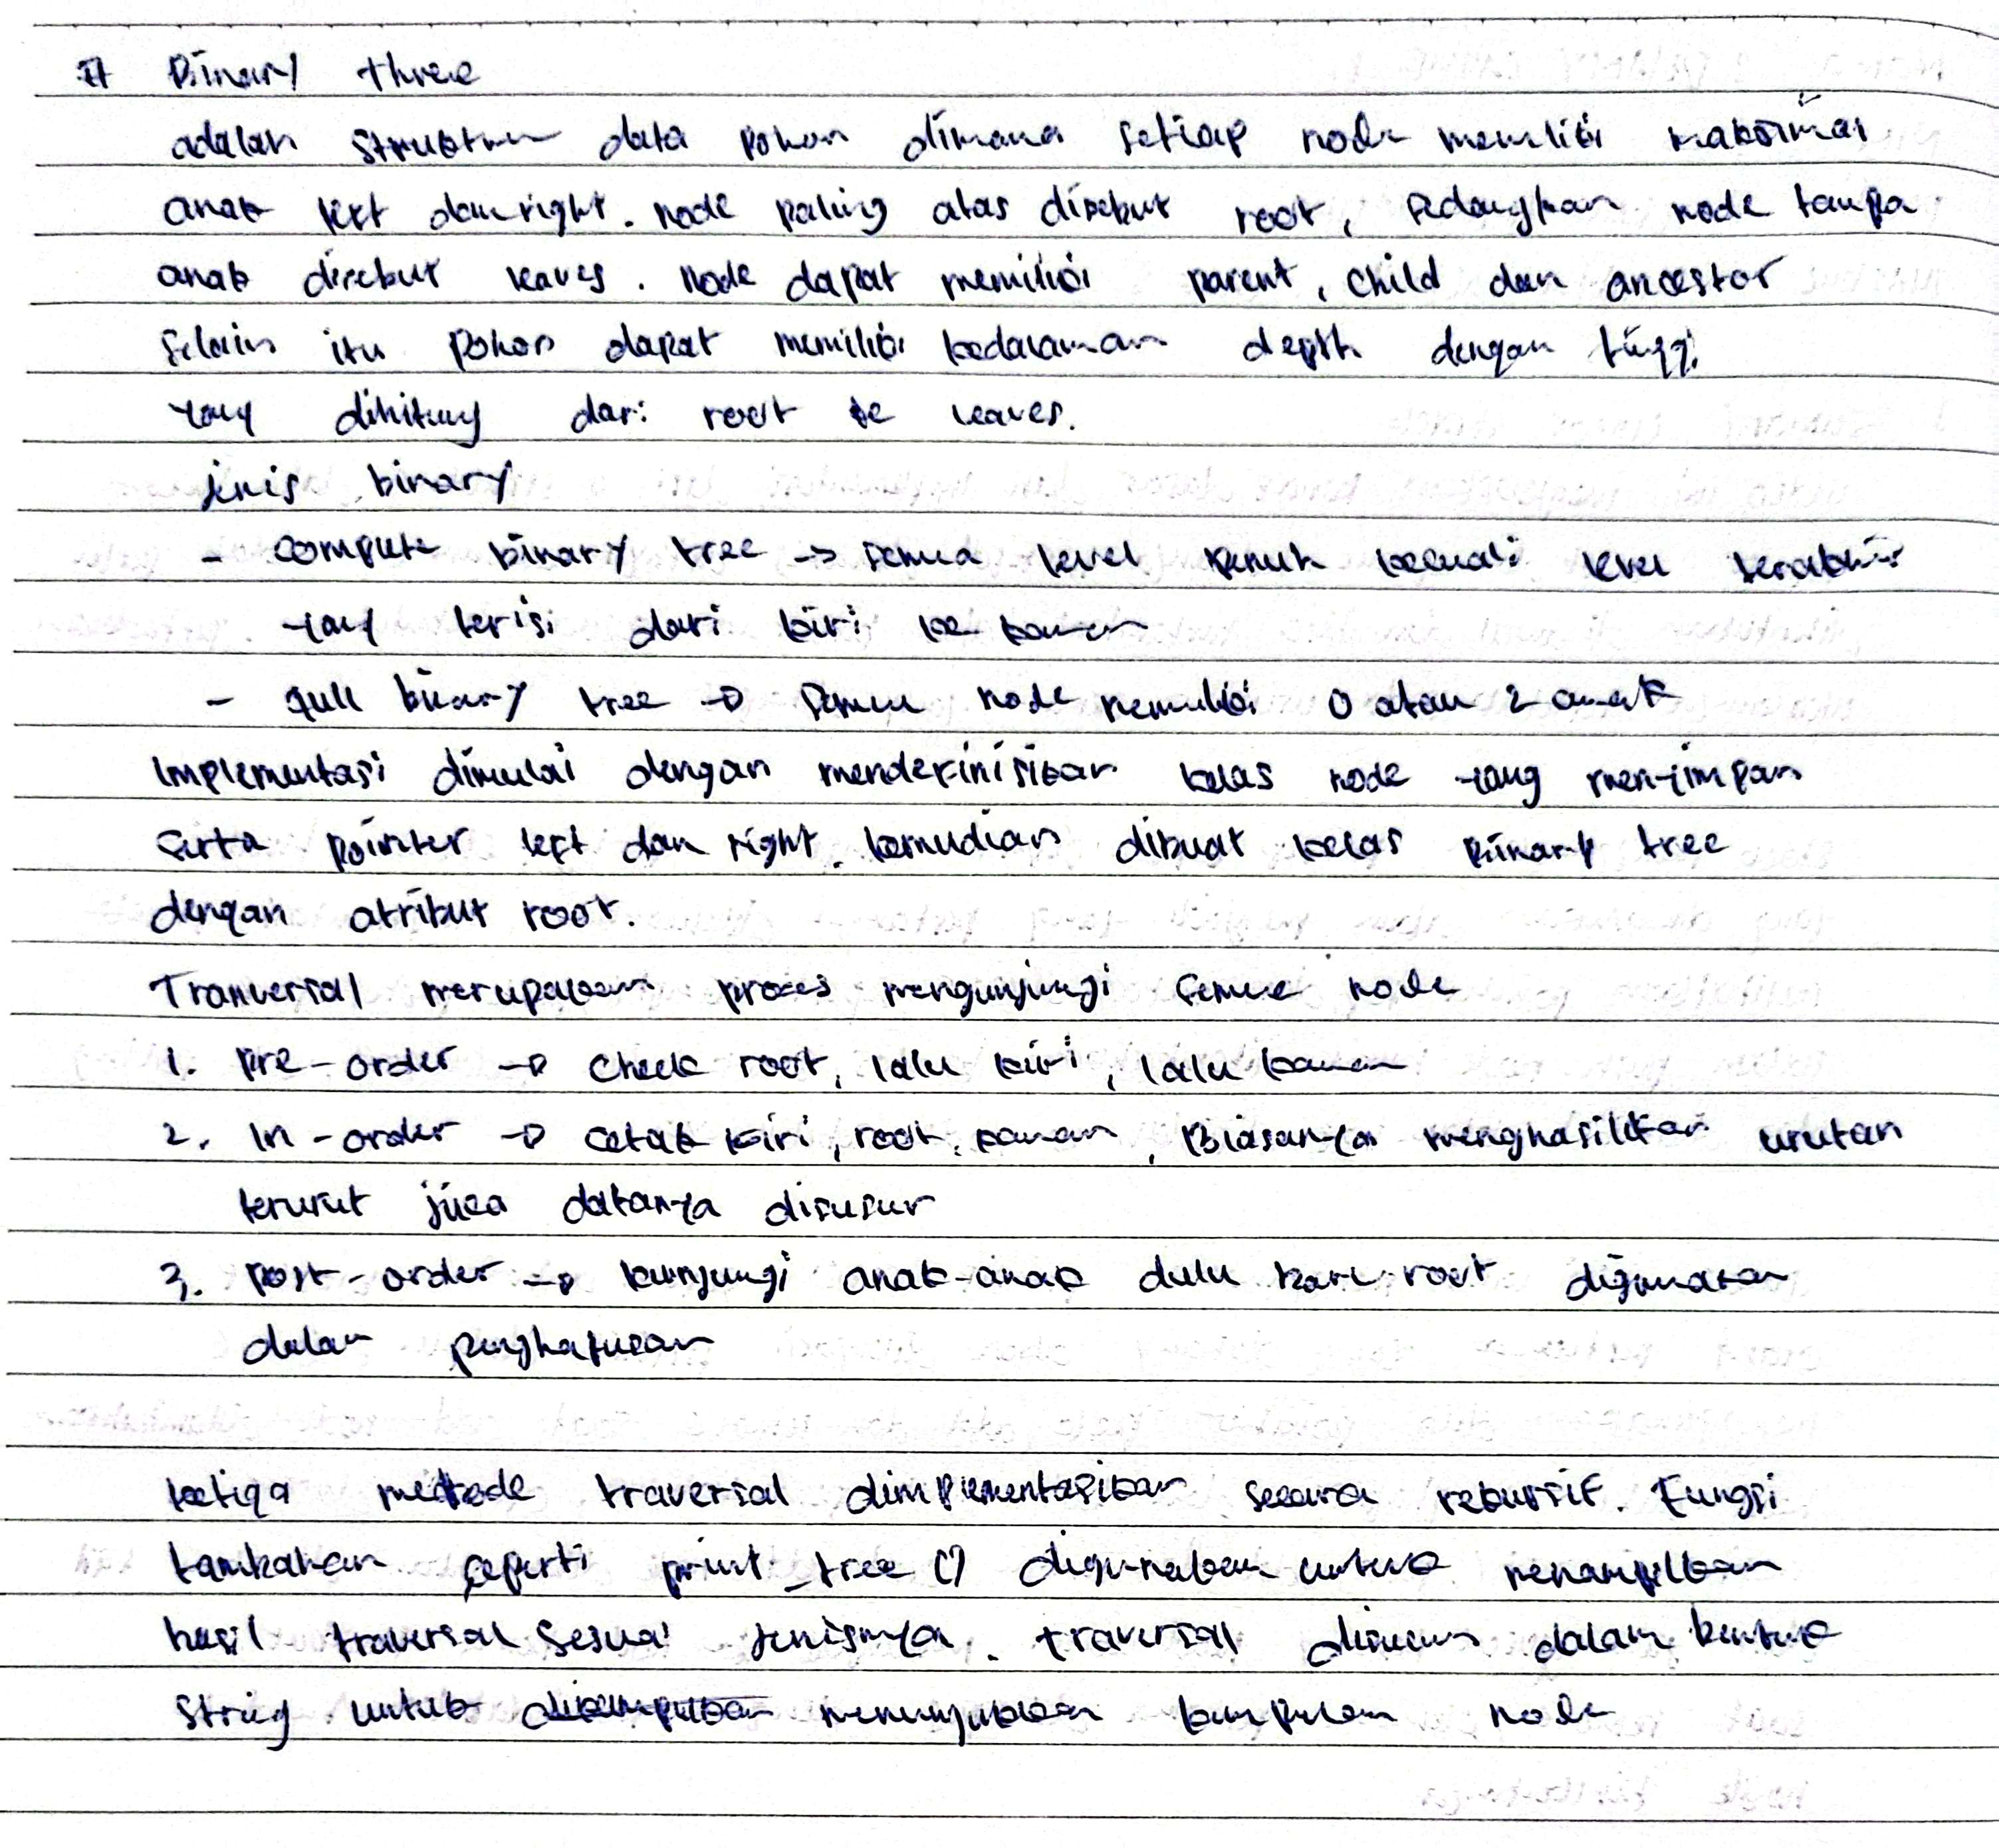 # Binary three
adalah struktur data pohon dimana setiap node memiliki maksimal
anak left dan right. node paling atas disebut root, sedangkan node tanpa
anak disebut leaves. Node dapat memiliki parent, child dan ancestor
selain itu pohon dapat memiliki kedalaman depth dengan tinggi
yang dihitung dari root ke leaves.
jenis binary
- complete binary tree -> semua level penuh kecuali level terakhir
yang terisi dari kiri ke kanan
- full binary tree -> semua node memiliki 0 atau 2 anak
Implementasi dimulai dengan mendefinisikan kelas node yang menyimpan
serta pointer left dan right. kemudian dibuat kelas Binary tree
dengan atribut root.
Tranversial merupakan proses mengunjungi semua node
1. Pre-order -> check root, lalu kiri, lalu kanan
2. In-order -> cetak kiri, root, kanan, biasanya menghasilkan urutan
terurut jika datanya disusur
3. Post-order -> kunjungi anak-anak dulu root digunakan
dalam penghapusan
ketiga metode traversal dimplementasikan secara rekursif. Fungsi
tambahan seperti print_tree () digunakan untuk menampilkan
hasil traversal sesuai jenisnya. traversal disusun dalam bentuk
string untuk menunjukkan kumpulan node